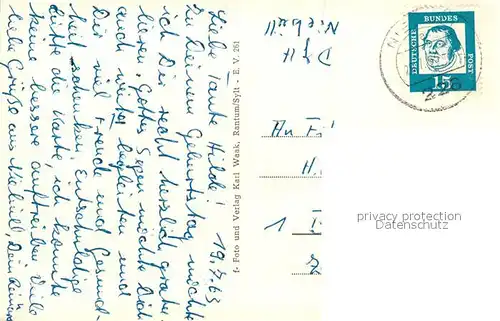 19.4.63
Liebe Tante Hilde!
Zu Deinem Geburtstag möchte
ich Dir recht herzlich gratu-
lieren. Gottes Segen möchte Dich
auch weiter begleiten und
Dir viel Freude und Gesund-
heit schenken. Entschuldige
bitte die Karte, ich konnte
keine bessere auftreiben. Viele
liebe Grüße aus Niebüll, Dein
f- Foto und Verlag Karl Waak, Rantum/Sylt - E. V. 261
Niebüll
An
1
DEUTSCHE
BUNDES
POST
15
privacy protection
Datenschutz